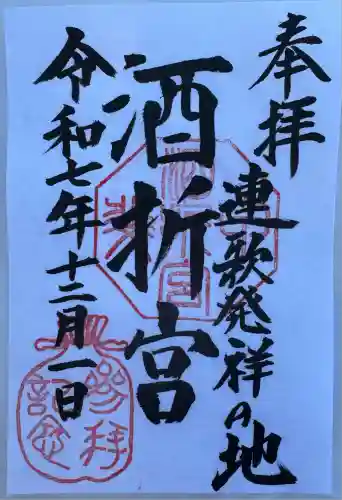 奉拝
連歌発祥の地
酒折宮
令和七年十二月一日
参拝
記念